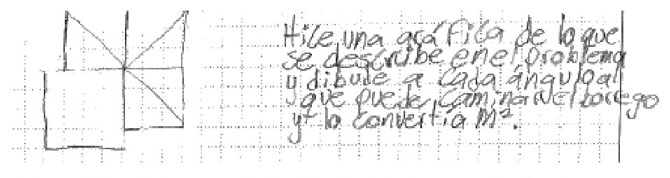 Hice una gráfica de lo que
se describe en el problema
y dibuje a cada angulo al
que puede caminar el borego
y lo convertía M².